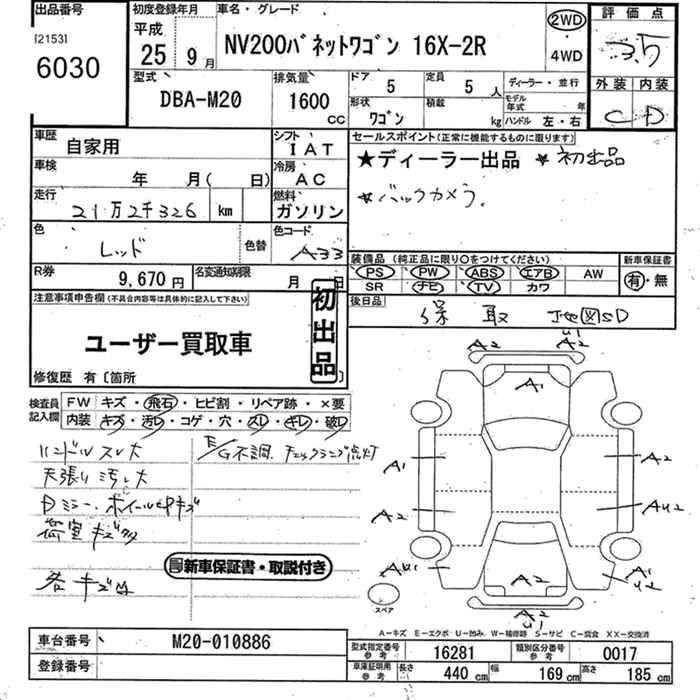 出品番号 初度登録年月 車名・グレード 評価点
[2153] 平成 25年 9月 NV200バネットワゴン 16X-2R 2WD 3.5
6030 4WD
型式 排気量 ドア 5 定員 5人 ディーラー・並行 外装 内装
DBA-M20 1600cc 形状 ワゴン 積載 kg モデル年式 年 ハンドル 左・右 C D
車歴 自家用 シフト IAT セールスポイント(正常に機能するものに限ります)
車検 年 月( 日) 冷房 AC ★ディーラー出品 ★初出品
走行 21万2千326 km 燃料 ガソリン ★バックカメラ.
色 レッド 色替 色コード A33
装備品(純正品に限り〇をつけてください) 新車保証書
R券 9,670円 名変通知期限 月 日 PS PW ABS エアB AW 有・無
SR ナビ TV カワ
注意事項申告欄(不具合内容等は具体的に記入して下さい) 初出品 後日品
保 取 地図SD
ユーザー買取車
修復歴 有〔箇所 〕
検査員記入欄 FW キズ・飛石・ヒビ割・リペア跡・×要
内装 キズ・汚レ・コゲ・穴・スレ・キレ・破レ
ハンドルスレ大 E/G不調、チェックランプ点灯
天張り汚レ大
Dミラー、ホイール中キズ
荷室キズ大
各キズ凹
新車保証書・取説付き
A2 A2 U1
A1
A1 A2
A2 AU2
AU1 A2 A1 U2
A2 U1
スペア
A-キズ E-エクボ U-凹み W-補修跡 S-サビ C-腐食 XX-交換済
車台番号 M20-010886 型式指定番号 参考 16281 類別区分番号 参考 0017
登録番号 車庫証明用 参考 長さ 440cm 幅 169cm 高さ 185cm